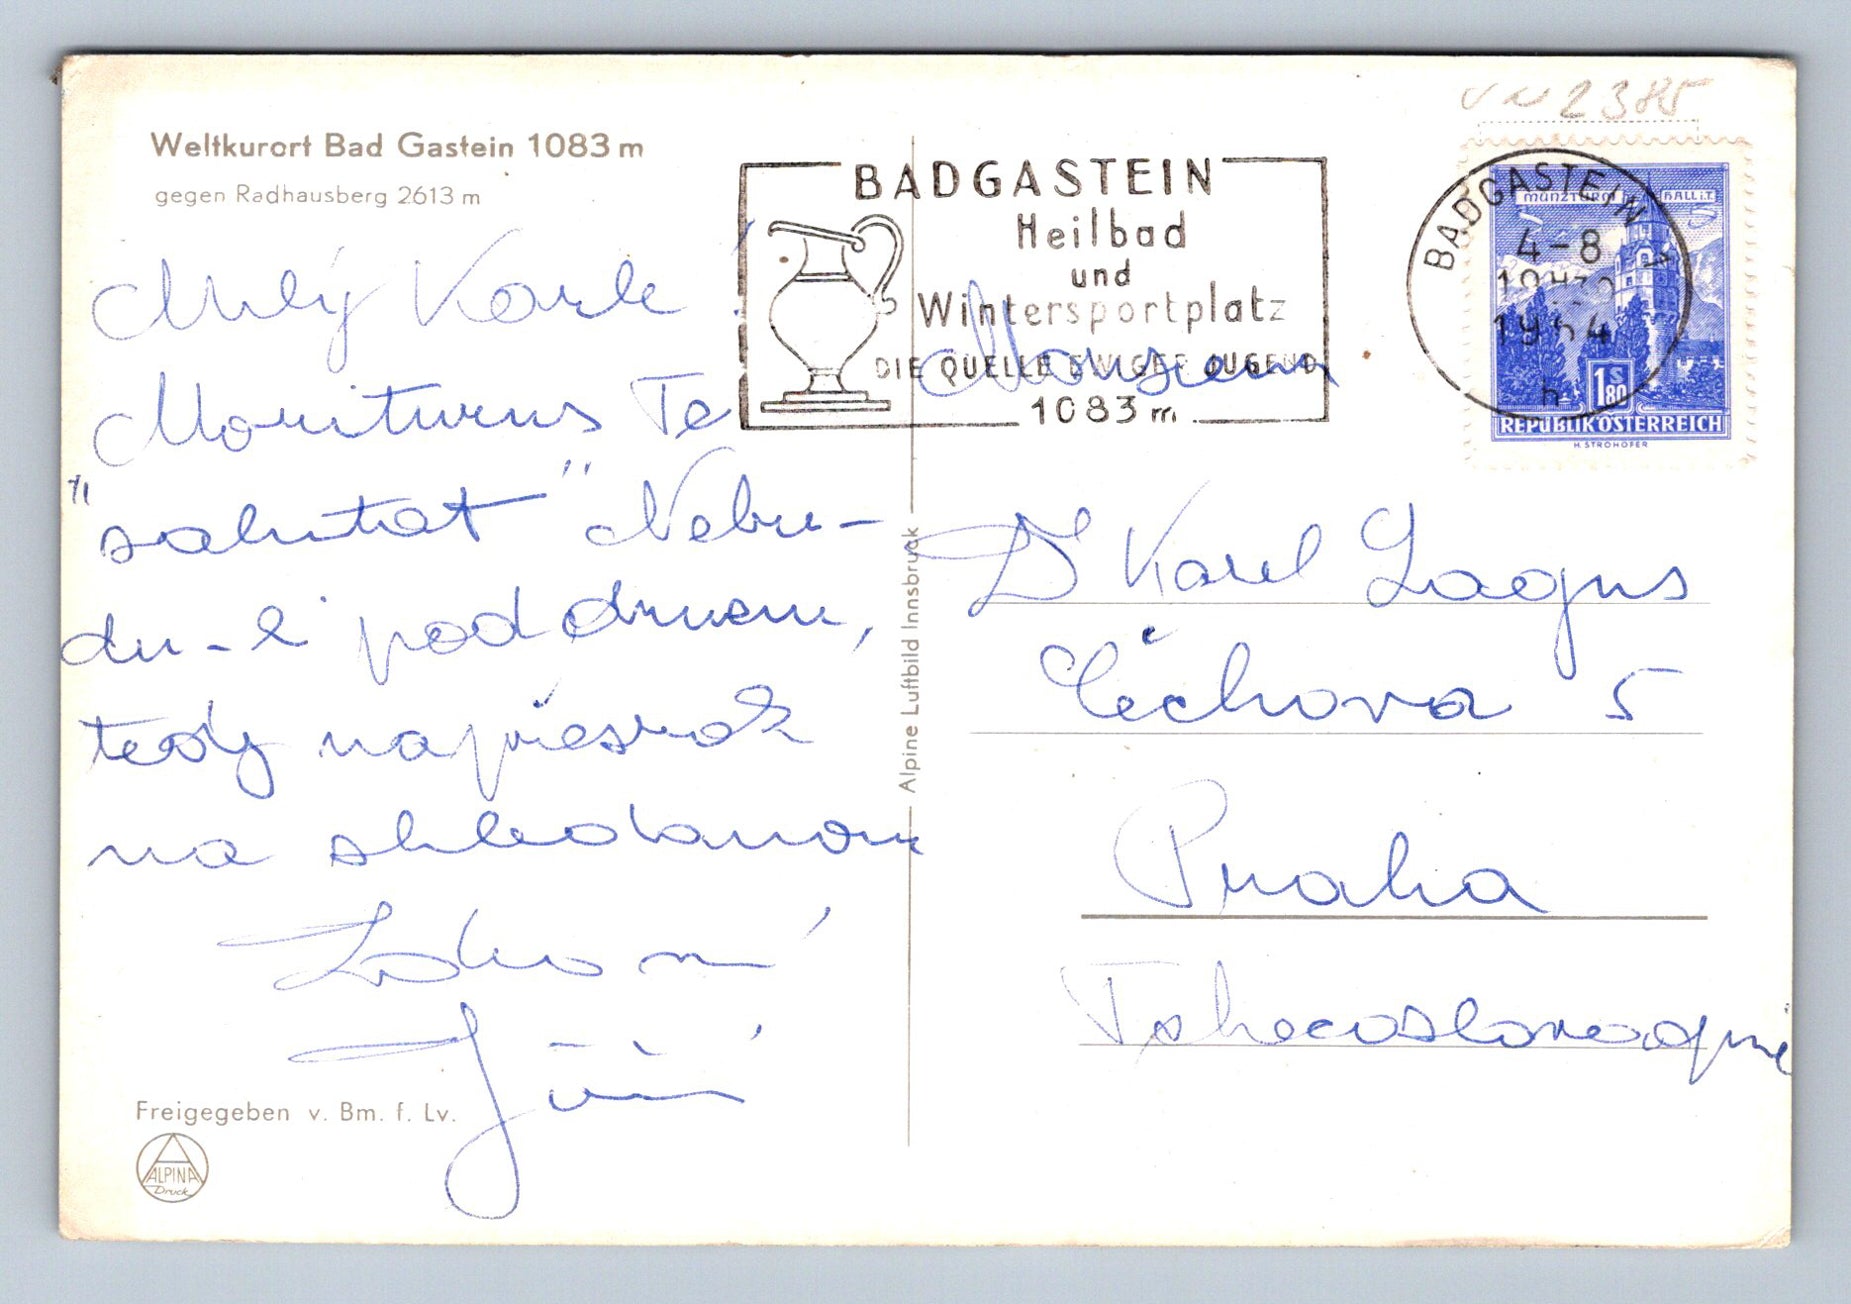 Weltkurort Bad Gastein 1083 m
gegen Radhausberg 2613 m
Milý Karle!
Moriturus Te
"salutat" Nebu-
du-li pod drnem,
tedy napřesrok
na shledanou
Freigegeben v. Bm. f. Lv.
ALPINA
Druck
Alpine Luftbild Innsbruck
BADGASTEIN
Heilbad
und
Wintersportplatz
DIE QUELLE EWIGER JUGEND
1083 m
2385
BADGASTEIN
4-8
1964
MÜNZTURM HALL i.T.
1 S 80
REPUBLIK ÖSTERREICH
H. STROHOFER
Monsieur
Dr Karel Lagus
Čechova 5
Praha
Tshecoslovaquie